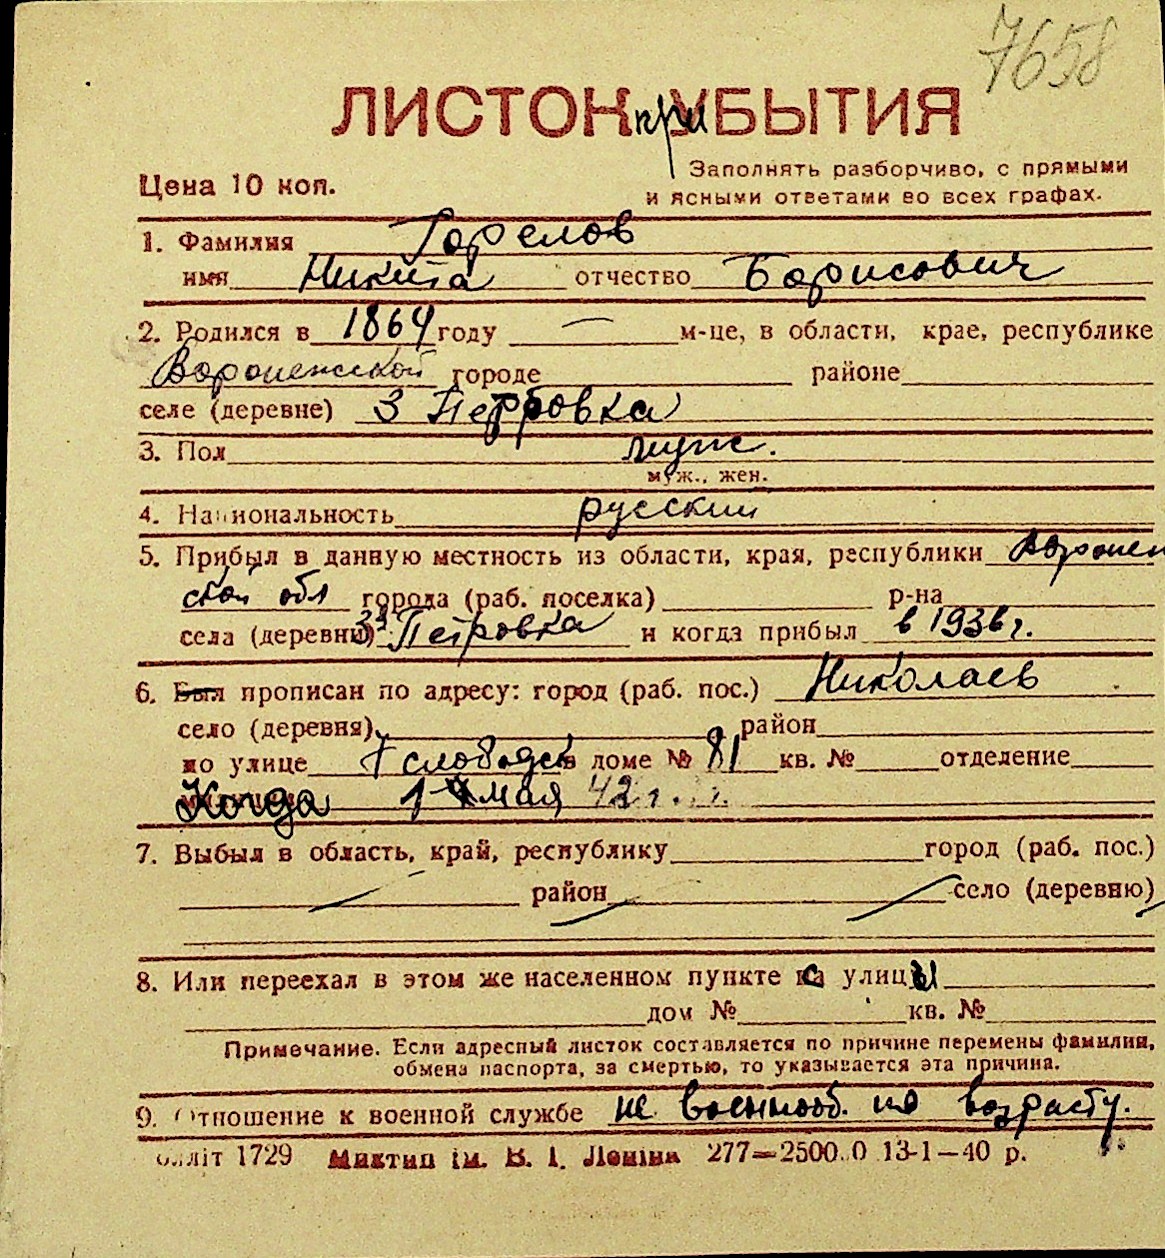 7658
ЛИСТОК приБЫТИЯ
Цена 10 коп.
Заполнять разборчиво, с прямыми
и ясными ответами во всех графах.
1. Фамилия Горелов
имя Никита отчество Борисович
2. Родился в 1864 году — м-це, в области, крае, республике
Воронежской городе районе
селе (деревне) 3 Петровка
3. Пол муж.
муж., жен.
4. Национальность русский
5. Прибыл в данную местность из области, края, республики Воронеж
ской обл города (раб. поселка) р-на
села (деревни) Петровка и когда прибыл в 1936 г.
6. Был прописан по адресу: город (раб. пос.) Николаев
село (деревня) район
по улице 7 слободск доме № 81 кв. № отделение
Когда 1 мая 42 г.
7. Выбыл в область, край, республику город (раб. пос.)
район село (деревню)
8. Или переехал в этом же населенном пункте с улицы
дом № кв. №
Примечание. Если адресный листок составляется по причине перемены фамилии,
обмена паспорта, за смертью, то указывается эта причина.
9. Отношение к военной службе не военнооб. по возрасту.
1729 ім. В. І. Леніна 277—2500.0 13-1—40 р.